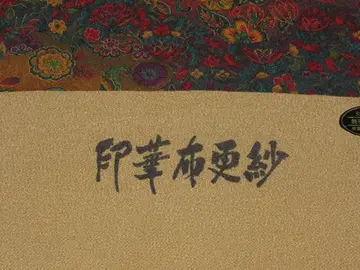 印華布更紗